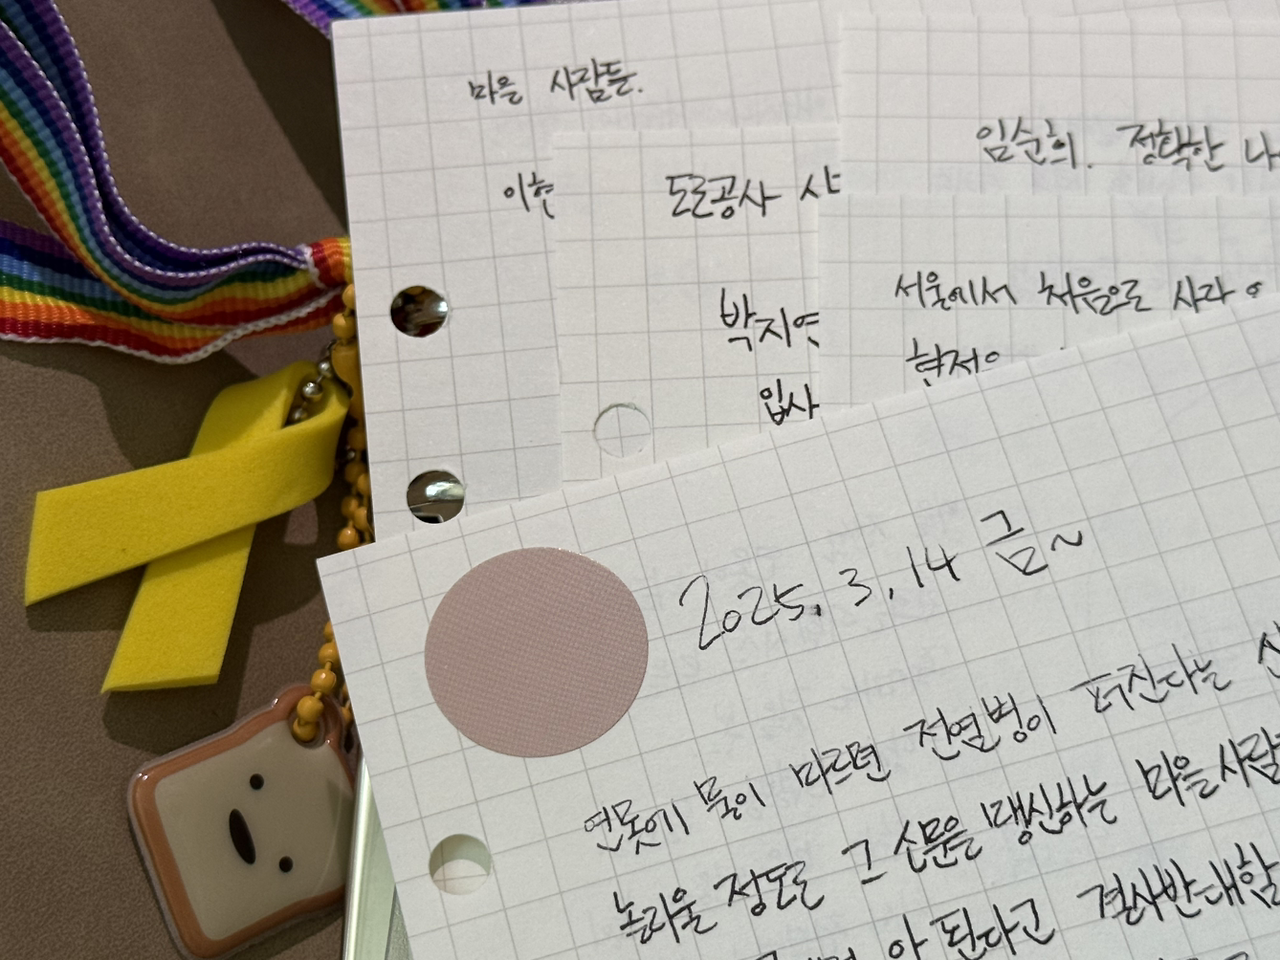 마을 사람들.
이현
도로공사 사
박지연
입사
임순희. 정확한 나
서울에서 처음으로 사라
2025. 3. 14 금~
연못에 물이 마르면 전염병이 퍼진다는
놀라울 정도로 그 신문을 맹신하는 마을사람
안 된다고 결사반대함